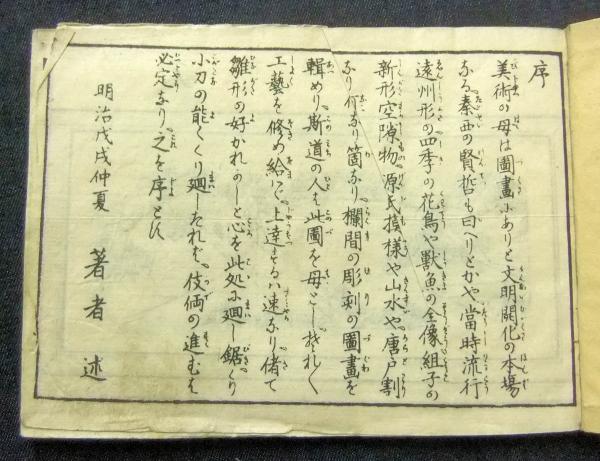 序
美術の母は圖畫にありと文明開化の本場
なる泰西の賢哲も曰へりとかや當時流行
遠州形の四季の花鳥や獸魚の全像組子の
新形空隙物源氏摸樣や山水や唐戸割
なり何なり箇なり欄間の彫刻の圖畫を
輯めり斯道の人も此圖を母としそれ〱
工藝を修め給はゞ上達するハ速なり偖て
雛形の好かれのしと心を此処に廻し鋸くり
小刀の能くくり廻したれバ伎倆の進むも
必定なり之を序とす
明治戊戌仲夏　著者述